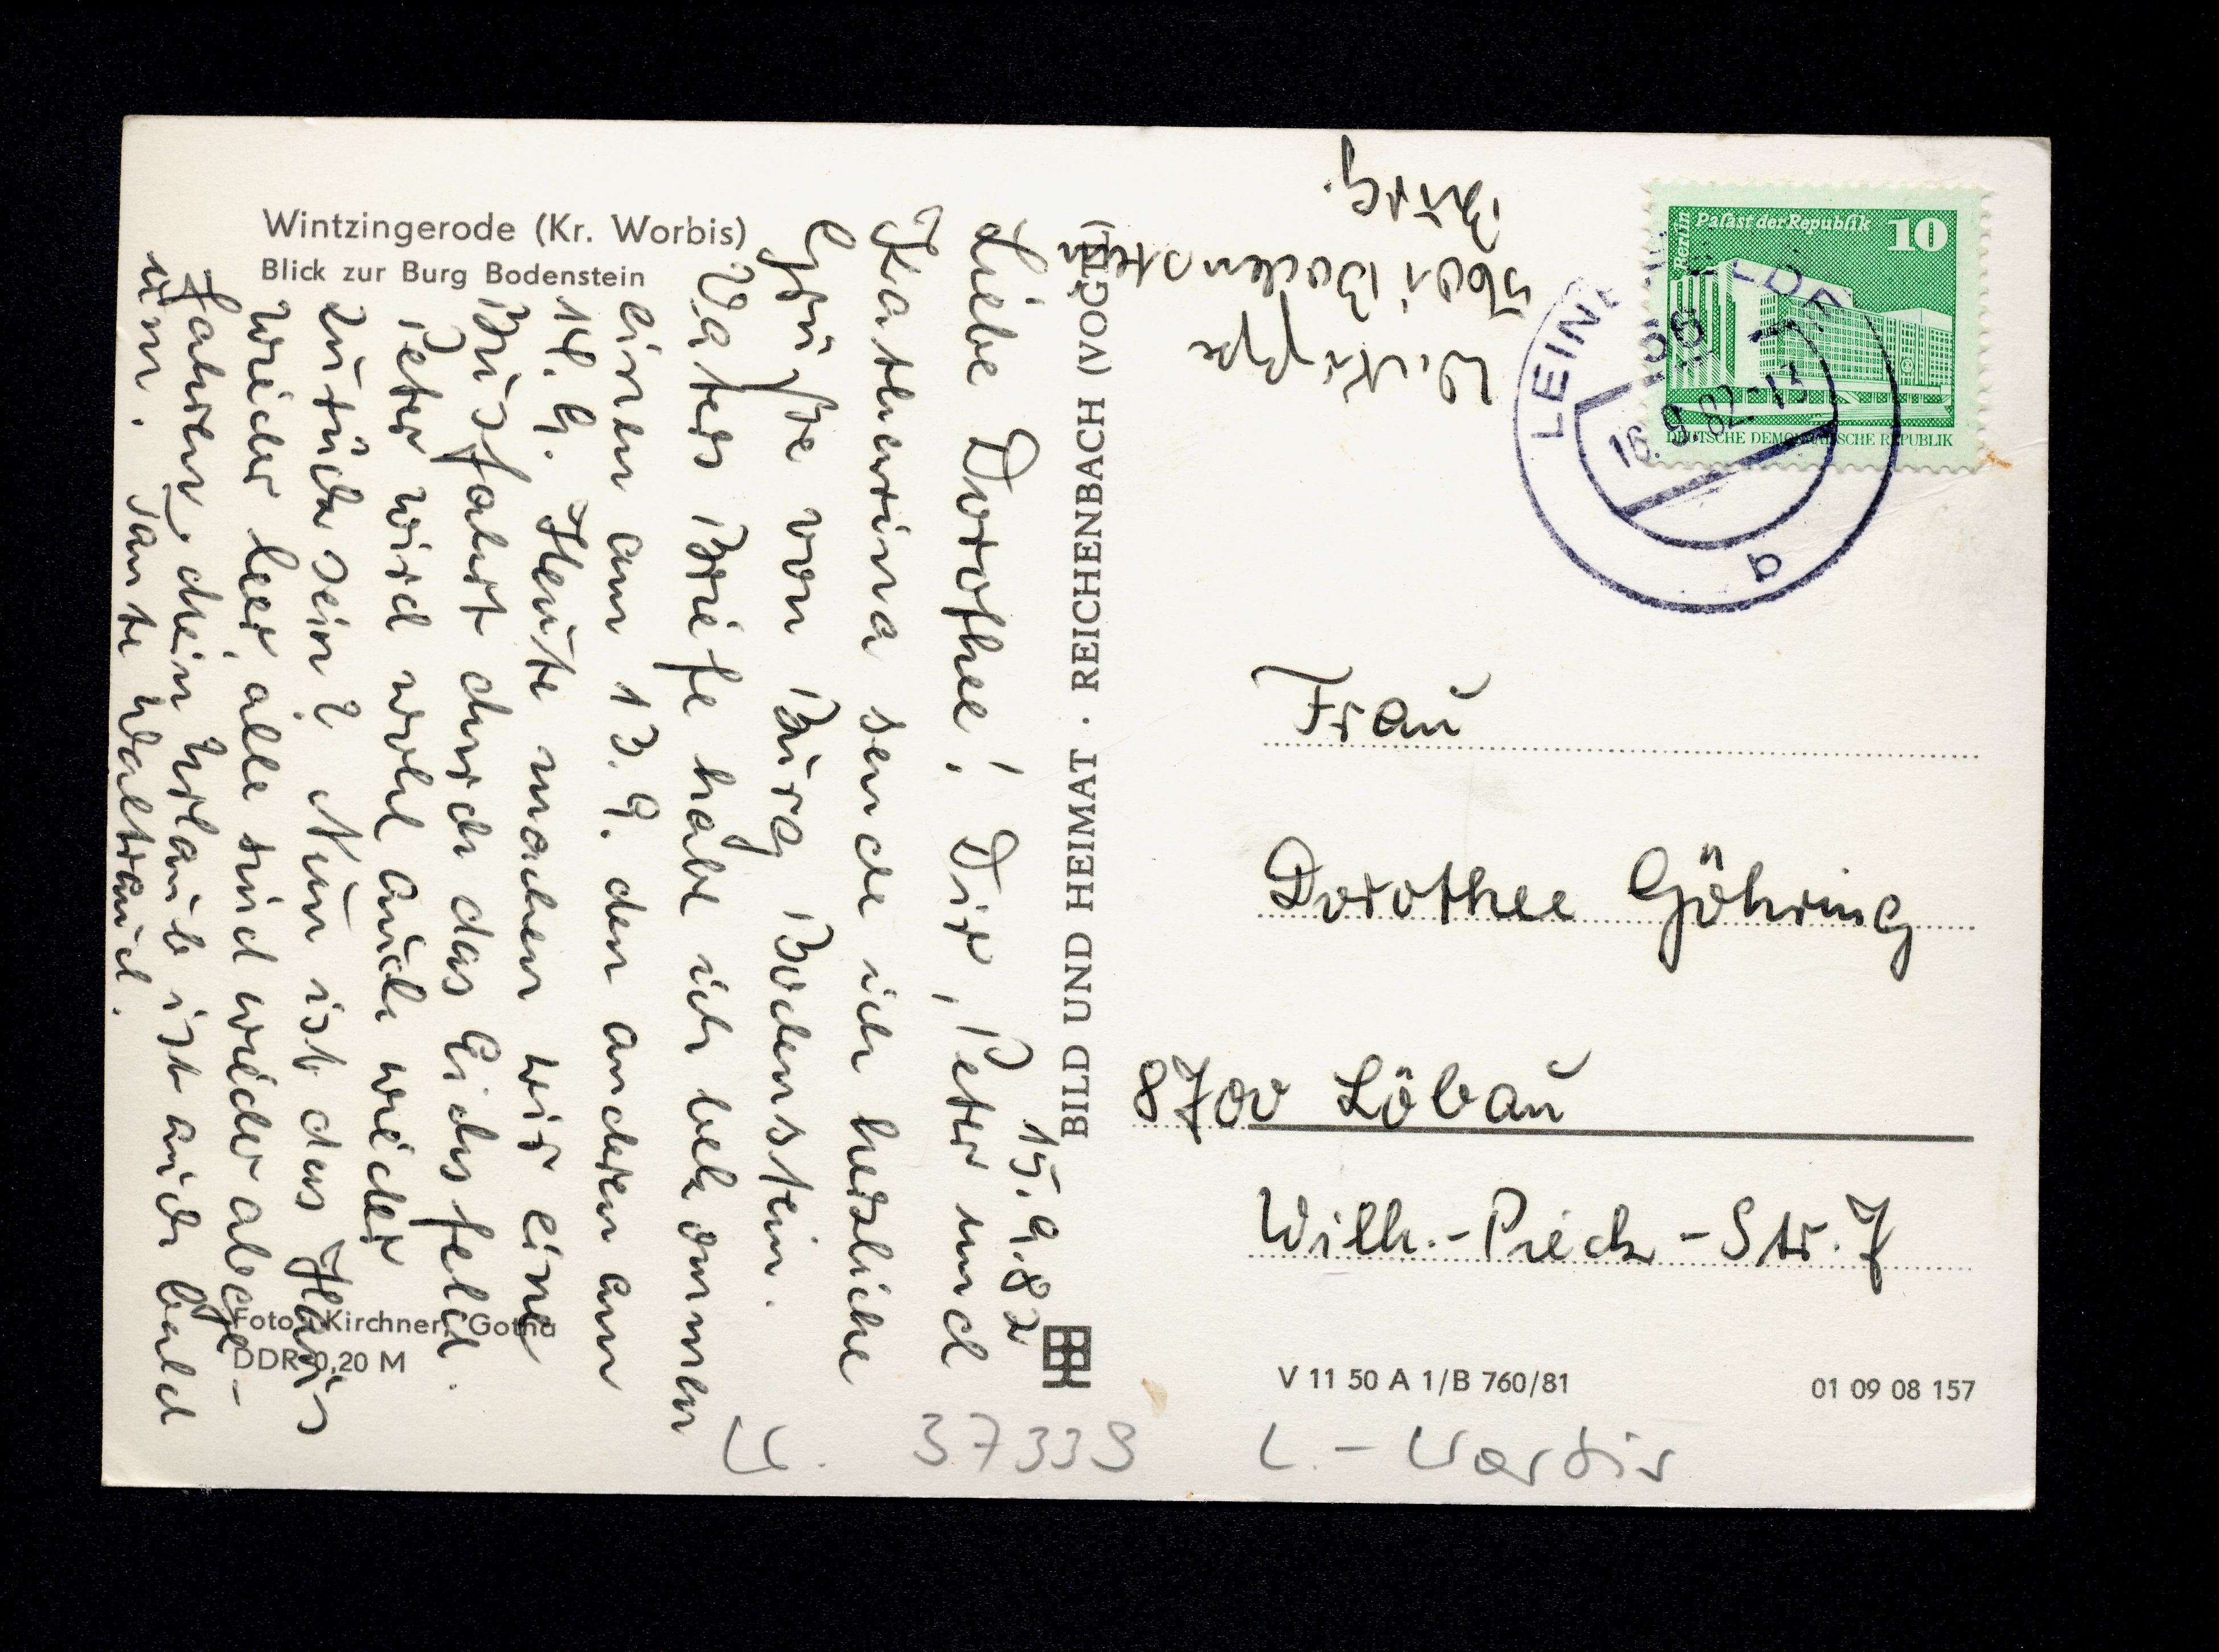 Wintzingerode (Kr. Worbis)
Blick zur Burg Bodenstein
15.9.82
Liebe Dorothee! Dir, Peter und
Katharina sende ich herzliche
Grüße von Burg Bodenstein.
Vaters Briefe habe ich bekommen
einen am 13.9. den anderen am
14.9. Heute machen wir eine
Busfahrt durch das Eichsfeld.
Peter wird wohl auch wieder
zurück sein? Nun ist das Haus
wieder leer, alle sind wieder abge-
fahren, dein Urlaub ist auch bald
um. Tante Waltraud.
Foto: Kirchner, Gotha
DDR 0,20 M
BILD UND HEIMAT · REICHENBACH (VOGTL)
5601 Bodenstein
Burg.
Berlin
Palast der Republik
10
DEUTSCHE DEMOKRATISCHE REPUBLIK
16.9.82-13
a
Frau
Dorothee Göhring
8700 Löbau
Wilh.-Pieck-Str. 7
V 11 50 A 1/B 760/81
01 09 08 157
37339
L.-Worbis